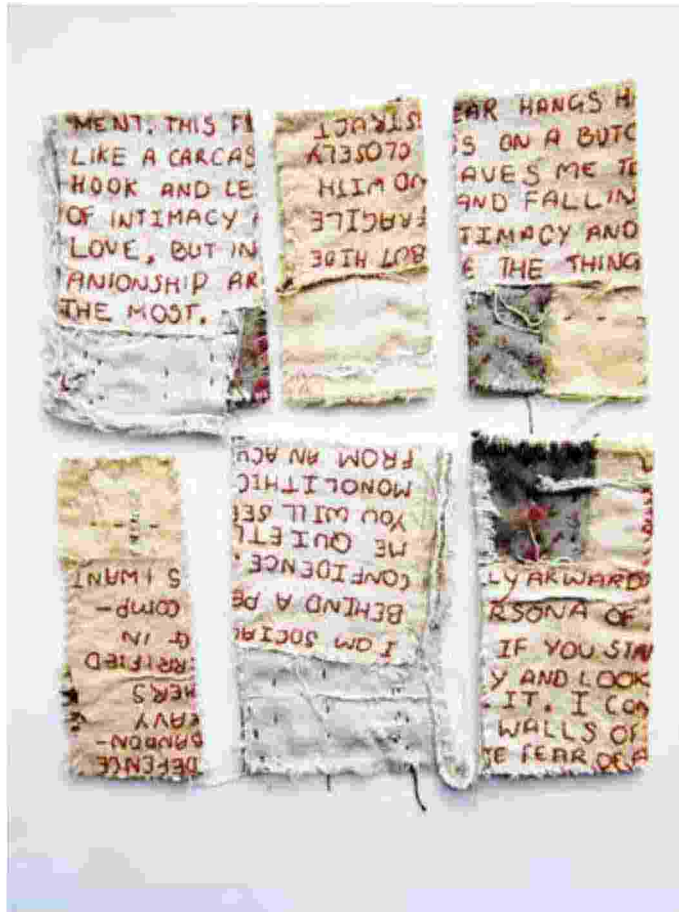 MENT. THIS FE
LIKE A CARCAS
HOOK AND LE
OF INTIMACY
LOVE, BUT IN
ANIONSHIP AR
THE MOST.
BUT HIDE
FRAGILE
ND WITH
CLOSELY
STRUCT
EAR HANGS H
S ON A BUTC
AVES ME TE
AND FALLIN
TIMACY AND
E THE THING
DEFENCE
BANDON-
EAVY
HERS
RRIFIED
G IN
COMP-
S I WANT
I AM SOCIAL
BEHIND A PE
CONFIDENCE.
ME QUIETL
YOU WILL SEE
MONOLITHIC
FROM AN ACU
LY AKWARD
RSONA OF
IF YOU STAN
Y AND LOOK
IT. I CON
WALLS OF
E FEAR OF A